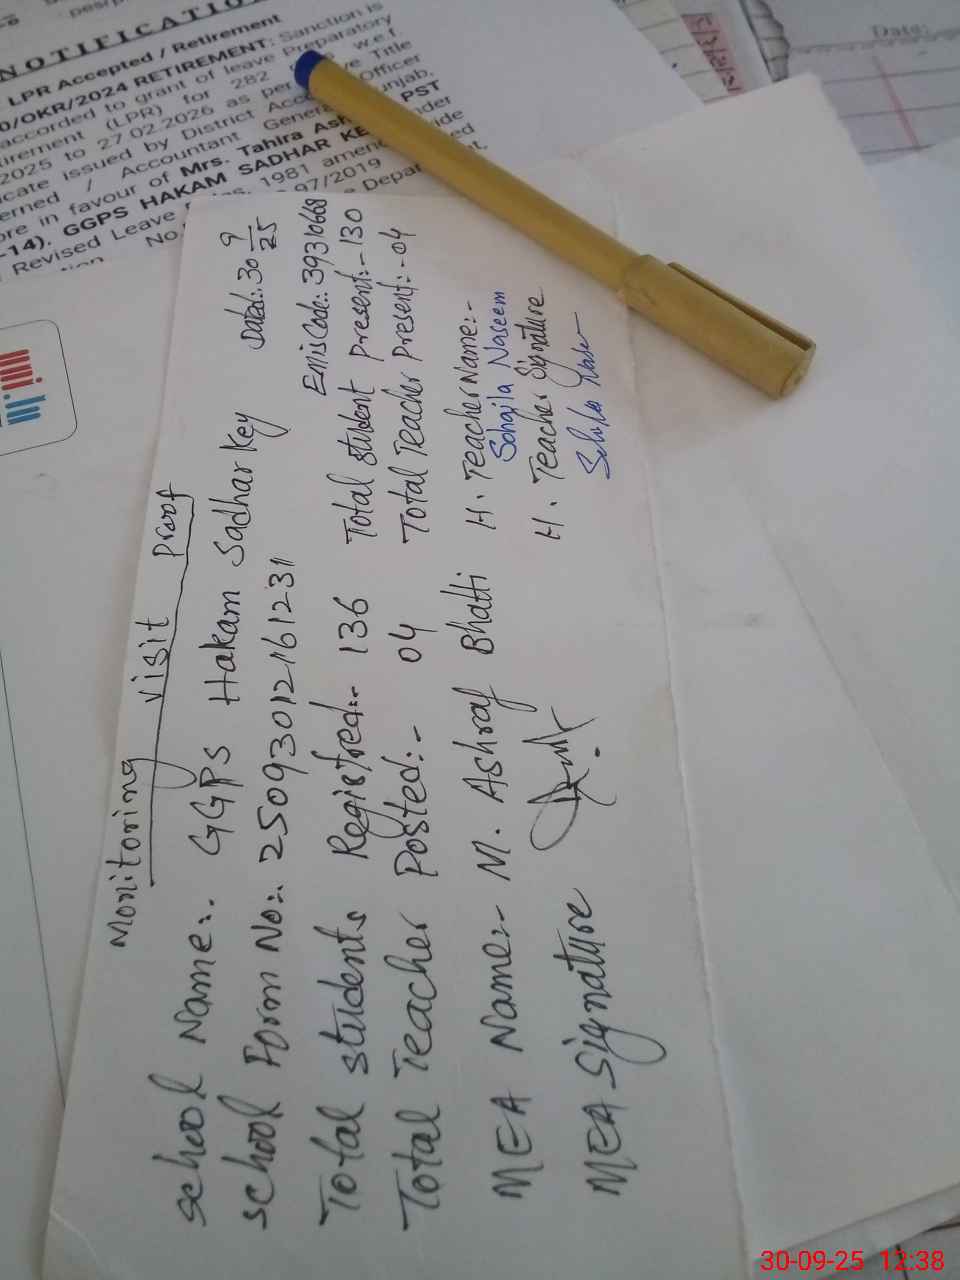 NOTIFICATION
LPR Accepted / Retirement
O/OKR/2024 RETIREMENT: Sanction is
accorded to grant of leave Preparatory
irement (LPR) for 282 w.e.f.
2025 to 27.02.2026 as per Title
icate issued by District Officer
erned / Accountant General Punjab,
ore in favour of Mrs. Tahira PST
-14). GGPS HAKAM SADHAR
Revised Leave 1981
No. 97/2019
Date:
Monitoring visit proof
Dated:. 30 9/25
School Name:. GGPS Hakam Sadhar Key
School Form No:. 2509301216 1231 Emis Code:. 39310668
Total students Registred:- 136 Total student present:- 130
Total Teacher Posted:- 04 Total Teacher present:- 04
MEA Name:- M. Ashraf Bhatti H. Teacher Name:-
Sohajla Naseem
MEA Signature H. Teacher Signature
30-09-25 12:38